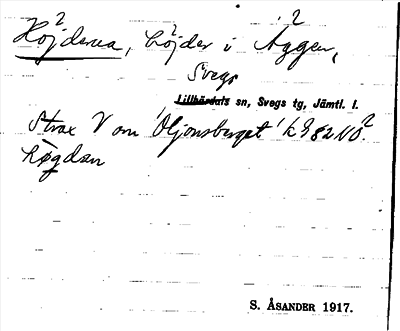 Höjderna, höjder i Äggen,
Svegs
Lillhärdals sn, Svegs tg, Jämtl. l.
Strax V om Oljonsberget
högdan
S. ÅSANDER 1917.